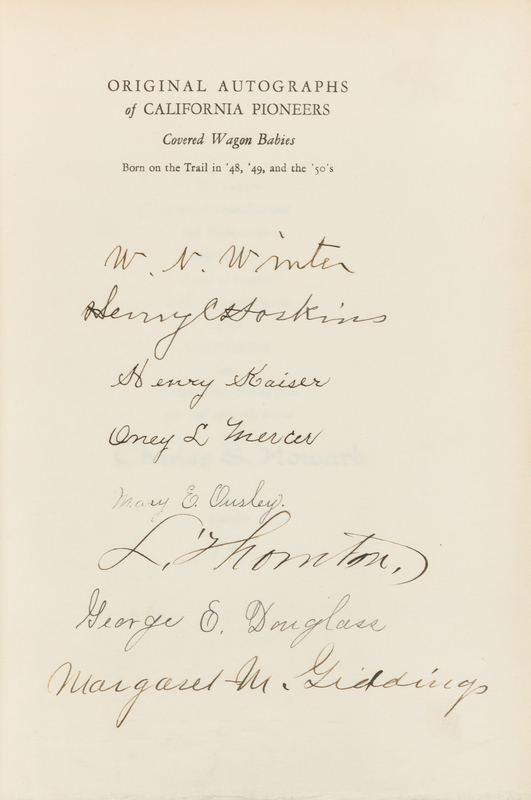 ORIGINAL AUTOGRAPHS
of CALIFORNIA PIONEERS
Covered Wagon Babies
Born on the Trail in '48, '49, and the '50's
W. N. Winter
Henry C Hoskins
Henry Kaiser
Oney L Mercer
Mary E. Ousley.
L. Thornton.
George E. Douglass
Margaret M. Giddings